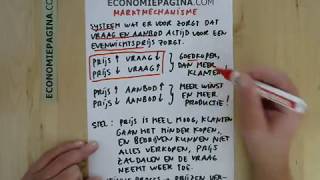 ECONOMIEPAGINA.COM
MARKTMECHANISME
SYSTEEM WAT ER VOOR ZORGT DAT
VRAAG EN AANBOD ALTIJD VOOR EEN
EVENWICHTSPRIJS ZORGT.
PRIJS ↑ VRAAG ↓ } GOEDKOPER,
PRIJS ↓ VRAAG ↑ } DAN MEER KLANTEN!
PRIJS ↑ AANBOD ↑ } MEER WINST
PRIJS ↓ AANBOD ↓ } EN MEER PRODUCTIE!
STEL: PRIJS IS HEEL HOOG, KLANTEN
GAAN HET MINDER KOPEN,
EN BEDRIJVEN KUNNEN NIET
ALLES VERKOPEN, PRIJS
ZAL DALEN EN DE VRAAG
NEEMT WEER TOE.
PRIJZEN VER-
ECONOMIEPAGINA.COM